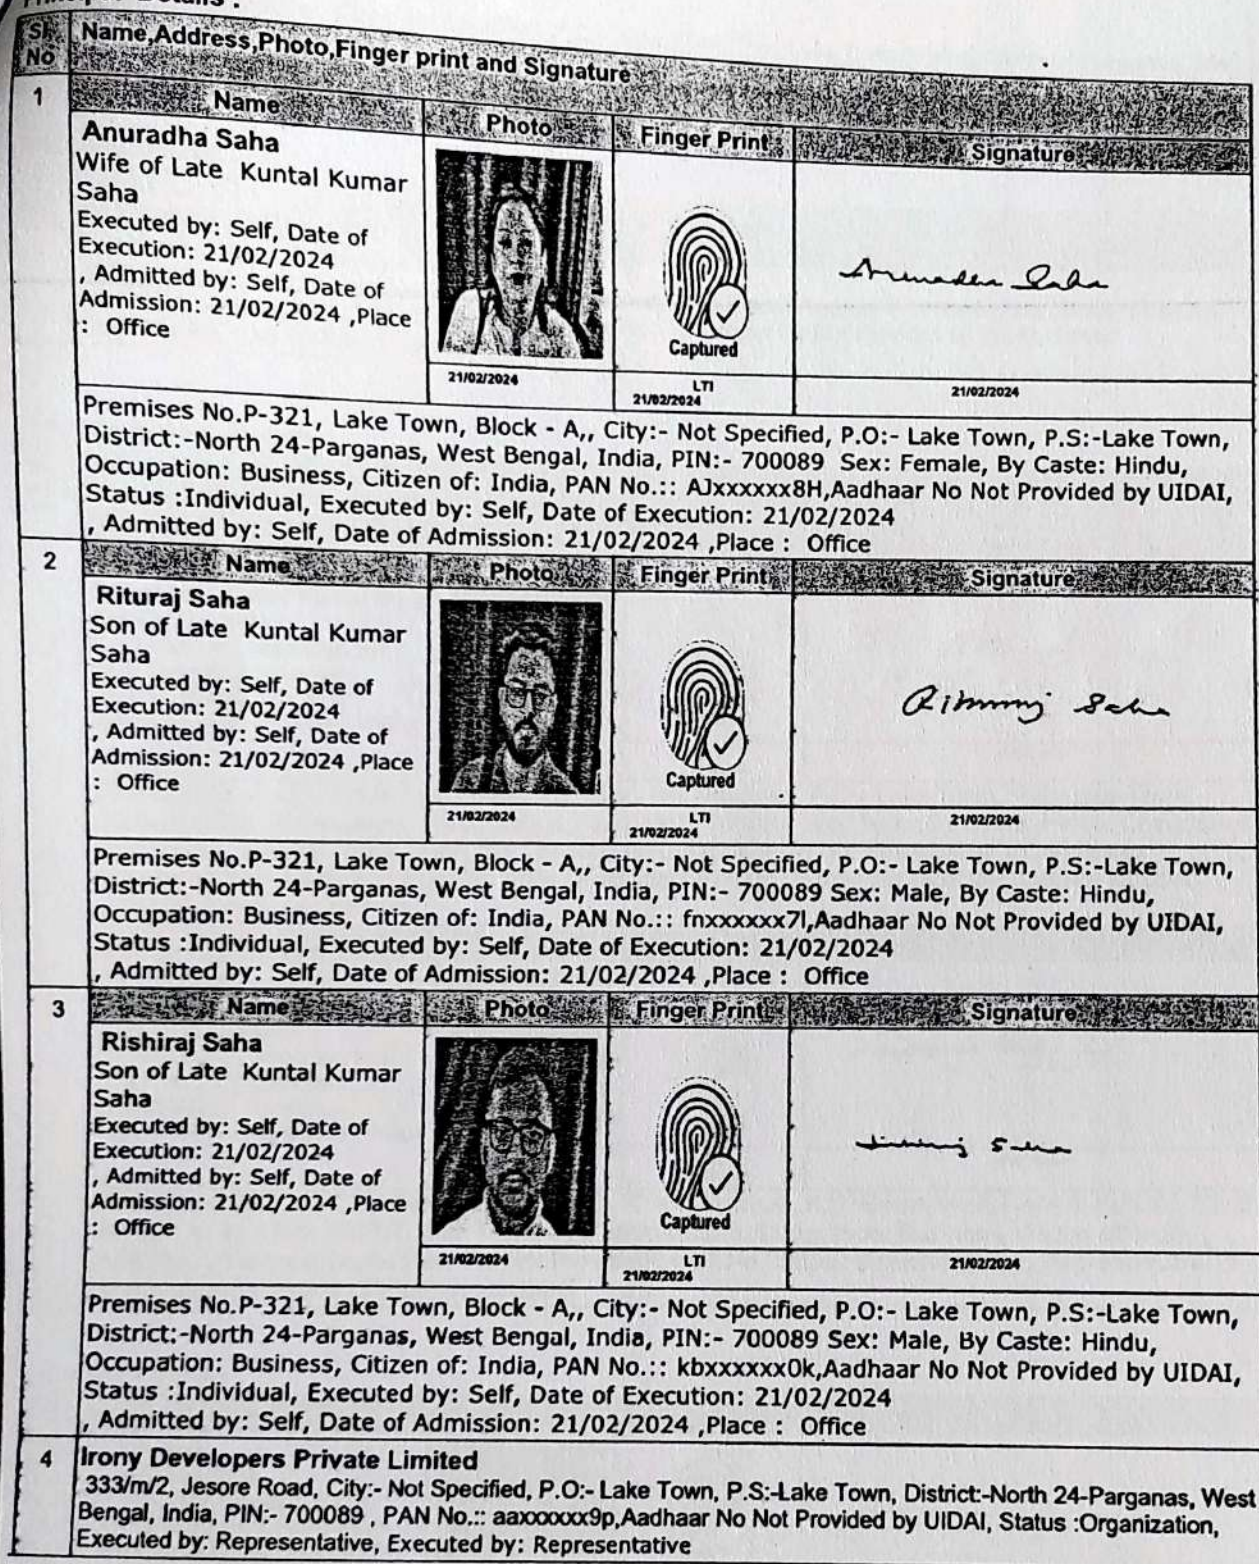 Details :
Sl. No
Name,Address,Photo,Finger print and Signature
1
Name
Photo
Finger Print
Signature
Anuradha Saha
Wife of Late Kuntal Kumar
Saha
Executed by: Self, Date of
Execution: 21/02/2024
, Admitted by: Self, Date of
Admission: 21/02/2024 ,Place
: Office
Captured
Saha
21/02/2024
LTI
21/02/2024
21/02/2024
Premises No.P-321, Lake Town, Block - A,, City:- Not Specified, P.O:- Lake Town, P.S:-Lake Town,
District:-North 24-Parganas, West Bengal, India, PIN:- 700089 Sex: Female, By Caste: Hindu,
Occupation: Business, Citizen of: India, PAN No.:: AJxxxxxx8H,Aadhaar No Not Provided by UIDAI,
Status :Individual, Executed by: Self, Date of Execution: 21/02/2024
, Admitted by: Self, Date of Admission: 21/02/2024 ,Place : Office
2
Name
Photo
Finger Print
Signature
Rituraj Saha
Son of Late Kuntal Kumar
Saha
Executed by: Self, Date of
Execution: 21/02/2024
, Admitted by: Self, Date of
Admission: 21/02/2024 ,Place
: Office
Captured
Saha
21/02/2024
LTI
21/02/2024
21/02/2024
Premises No.P-321, Lake Town, Block - A,, City:- Not Specified, P.O:- Lake Town, P.S:-Lake Town,
District:-North 24-Parganas, West Bengal, India, PIN:- 700089 Sex: Male, By Caste: Hindu,
Occupation: Business, Citizen of: India, PAN No.:: fnxxxxxx7l,Aadhaar No Not Provided by UIDAI,
Status :Individual, Executed by: Self, Date of Execution: 21/02/2024
, Admitted by: Self, Date of Admission: 21/02/2024 ,Place : Office
3
Name
Photo
Finger Print
Signature
Rishiraj Saha
Son of Late Kuntal Kumar
Saha
Executed by: Self, Date of
Execution: 21/02/2024
, Admitted by: Self, Date of
Admission: 21/02/2024 ,Place
: Office
Captured
21/02/2024
LTI
21/02/2024
21/02/2024
Premises No.P-321, Lake Town, Block - A,, City:- Not Specified, P.O:- Lake Town, P.S:-Lake Town,
District:-North 24-Parganas, West Bengal, India, PIN:- 700089 Sex: Male, By Caste: Hindu,
Occupation: Business, Citizen of: India, PAN No.:: kbxxxxxx0k,Aadhaar No Not Provided by UIDAI,
Status :Individual, Executed by: Self, Date of Execution: 21/02/2024
, Admitted by: Self, Date of Admission: 21/02/2024 ,Place : Office
4
Irony Developers Private Limited
333/m/2, Jesore Road, City:- Not Specified, P.O:- Lake Town, P.S:-Lake Town, District:-North 24-Parganas, West
Bengal, India, PIN:- 700089 , PAN No.:: aaxxxxxx9p,Aadhaar No Not Provided by UIDAI, Status :Organization,
Executed by: Representative, Executed by: Representative